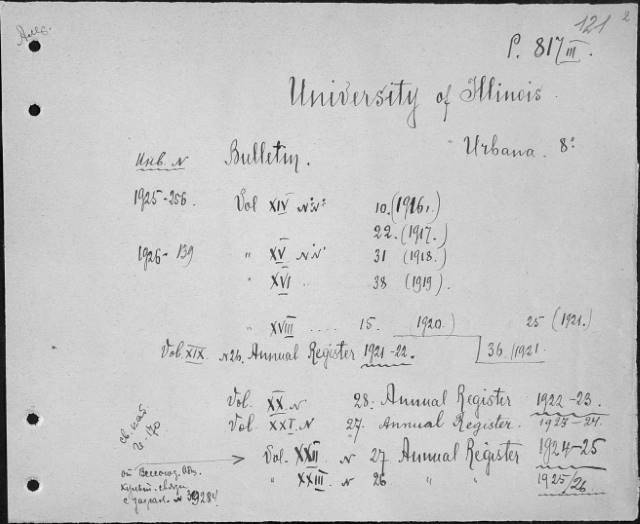 Англ.
121 2
P. 817 III.
University of Illinois.
Urbana. 8°
Инв. N Bulletin.
1925-256. Vol XIV N:N: 10. (1916.)
22. (1917.)
1926- 139 " XV N:N: 31 (1918.)
" XVI 38 (1919).
" XVIII .... 15. (1920.) 25 (1921.)
Vol. XIX. N 26. Annual Register 1921-22. 36. /1921.
Vol. XX. N 28. Annual Register 1922-23.
Vol XXI. N 27. Annual Register. 1923-24.
Vol. XXII N 27 Annual Register 1924-25
" XXIII N 26 " " 1925/26
от Всесоюз. Общ.
культ. связи
с загран. N